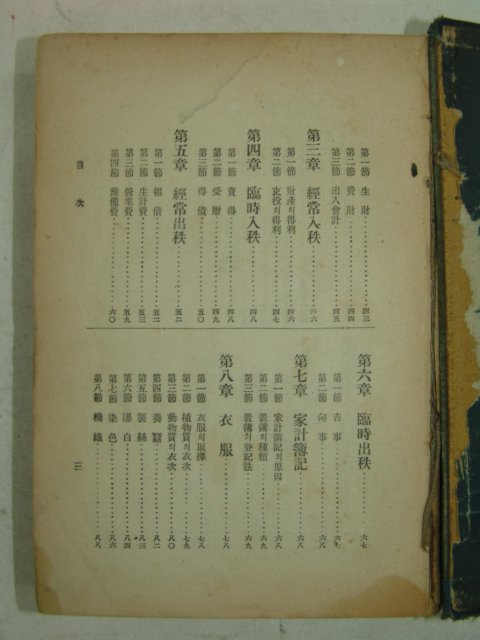 第一節 生財 四三
第二節 費財 四四
第三節 出入會計 四五
第三章 經常入秩 四六
第一節 財產의得利 四六
第二節 來役의得利 四七
第四章 臨時入秩 四八
第一節 賣得 四八
第二節 受贈 四九
第三節 得債 五〇
第五章 經常出秩 五二
第一節 報債 五二
第二節 生計費 五三
第三節 營業費 五九
第四節 候備費 六〇
目次
第六章 臨時出秩 六七
第一節 吉事 六七
第二節 何事 六八
第七章 家計簿記 六八
第一節 家計簿記의原因 六八
第二節 置簿의種類 六九
第三節 置簿의登記法 六九
第八章 衣服 七八
第一節 衣服의取擇 七八
第二節 植物質의衣次 七九
第三節 動物質의衣次 八〇
第四節 養蠶 八二
第五節 製絲 八三
第六節 漂白 八四
第七節 染色 八六
第八節 機織 八八
三